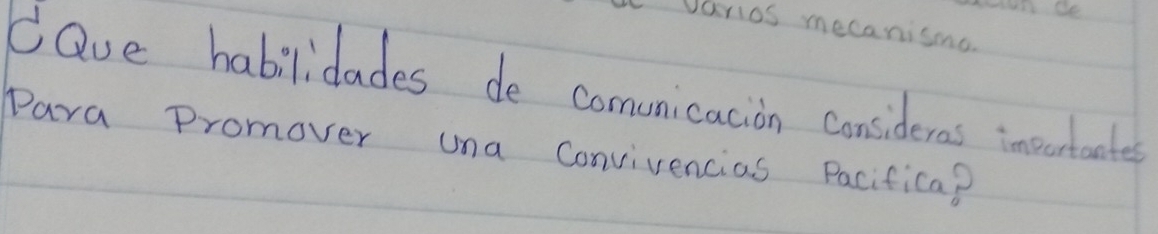 de
varios mecanismo.
¿Que habilidades de comunicación consideras importantes
Para Promover una convivencias Pacifica?